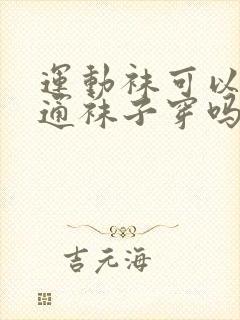 運動袜可以
通袜子穿吗
吉元海